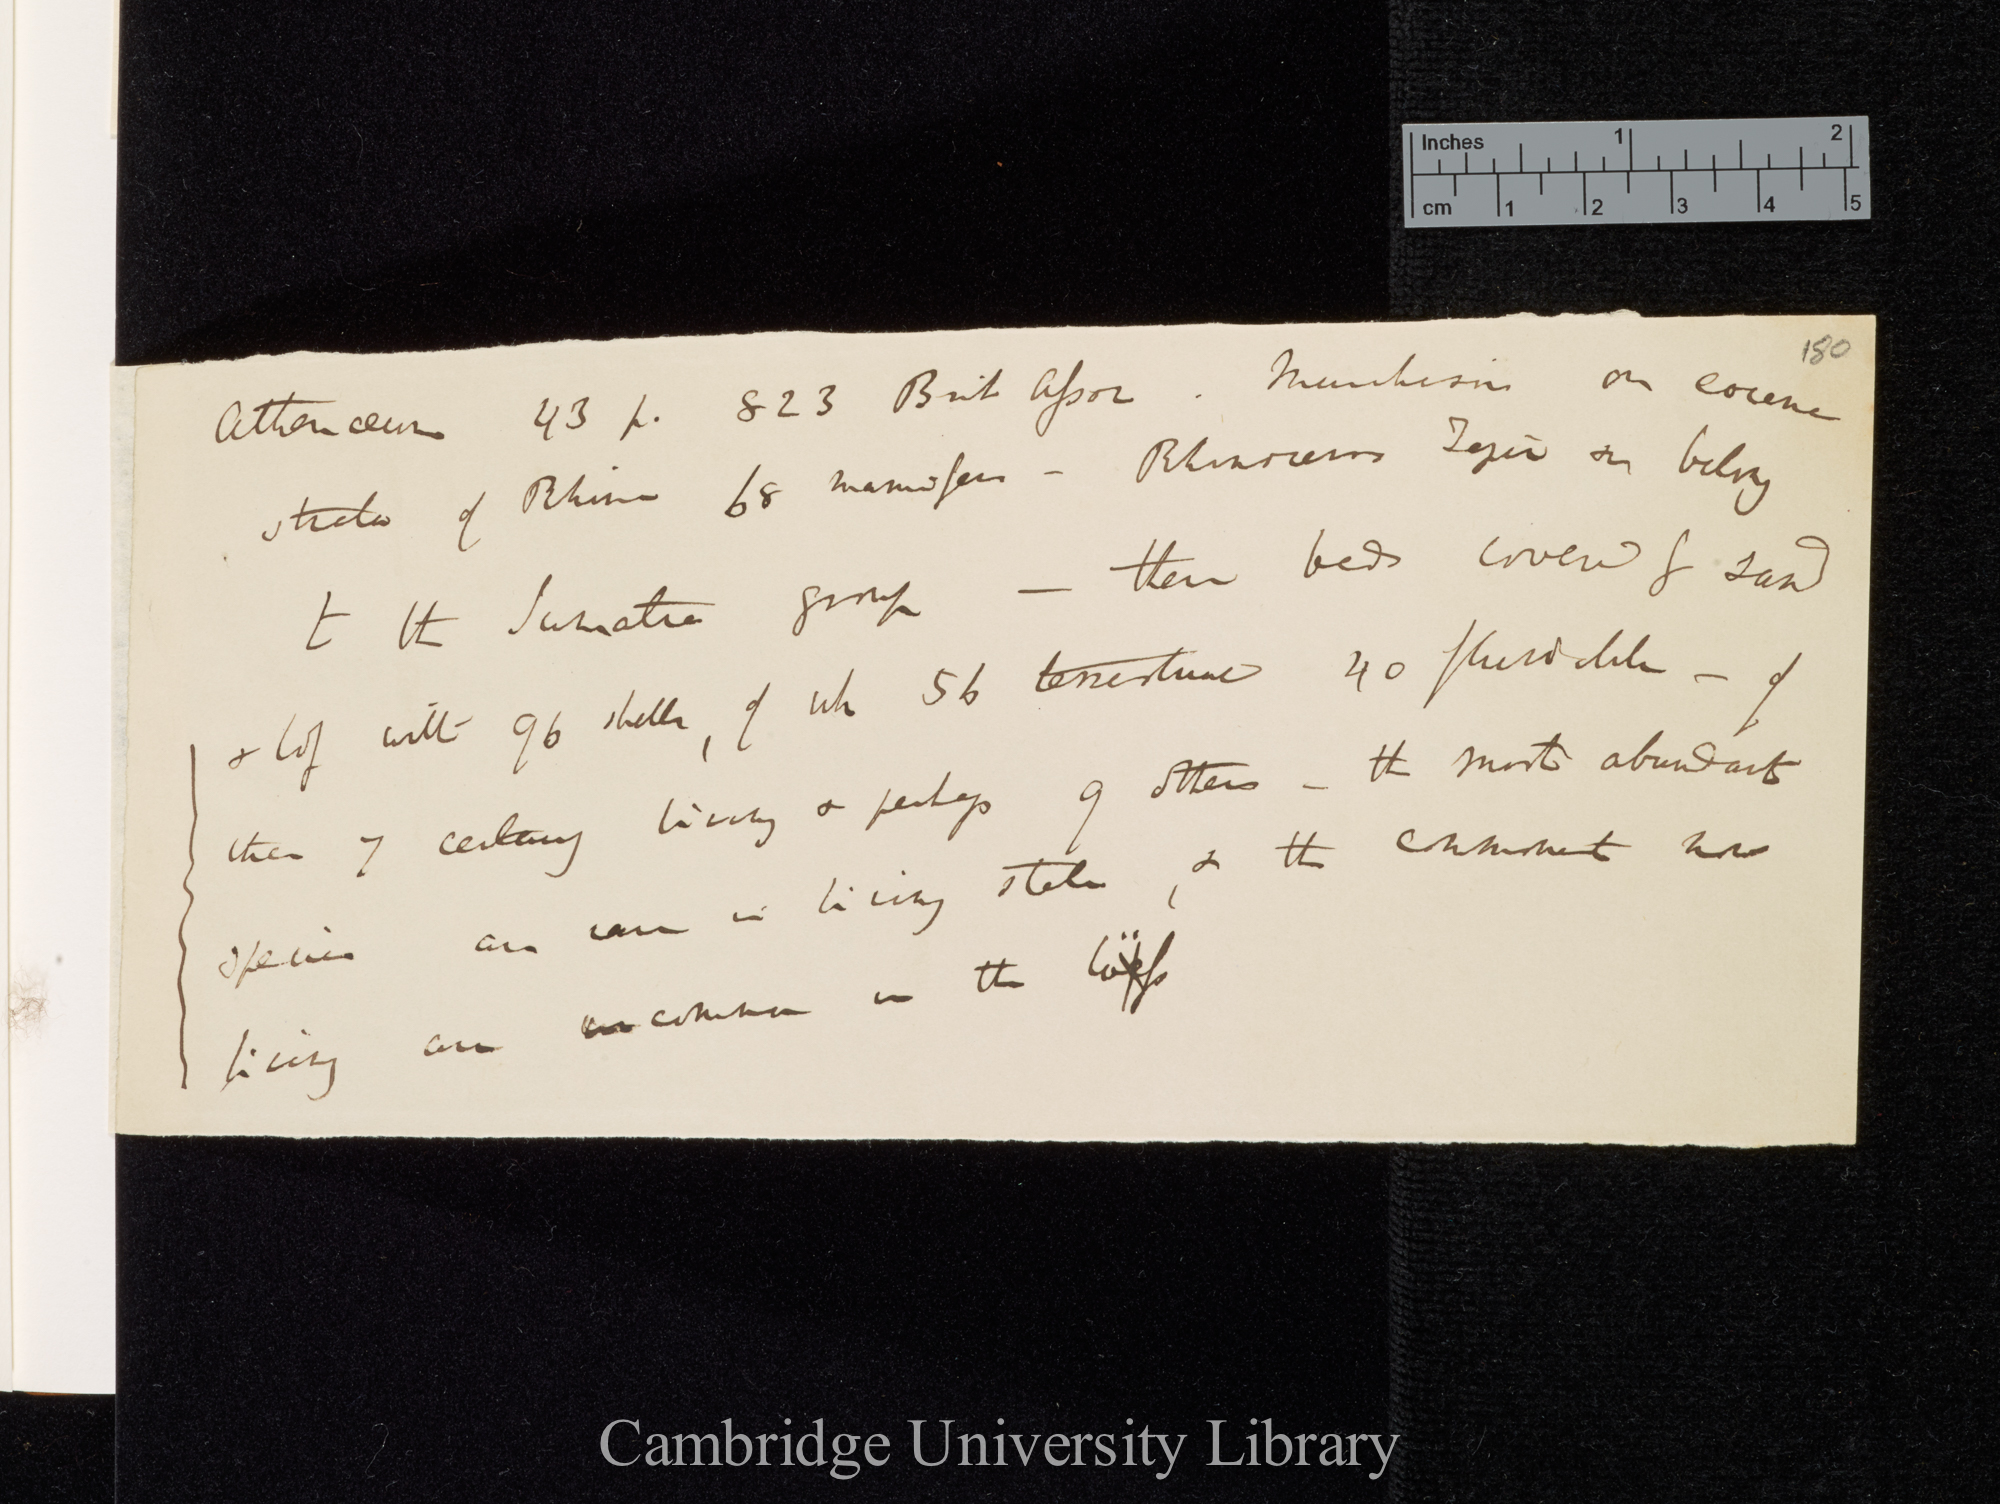 180
Athenæum 43 p. 823 Brit Assoc. Murchison on eocene
strata of Rhine 68 mammifers — Rhinoceros Tapir &c belong
to the Sumatra group — these beds covered by sand
& löss with 96 shells, of wh 56 terrestrial 40 fluviatile — of
these 7 certainly living & perhaps 9 others — the most abundant
species are rare in living state, & the commonest now
living are uncommon in the löess
Inches 1 2
cm 1 2 3 4 5
Cambridge University Library